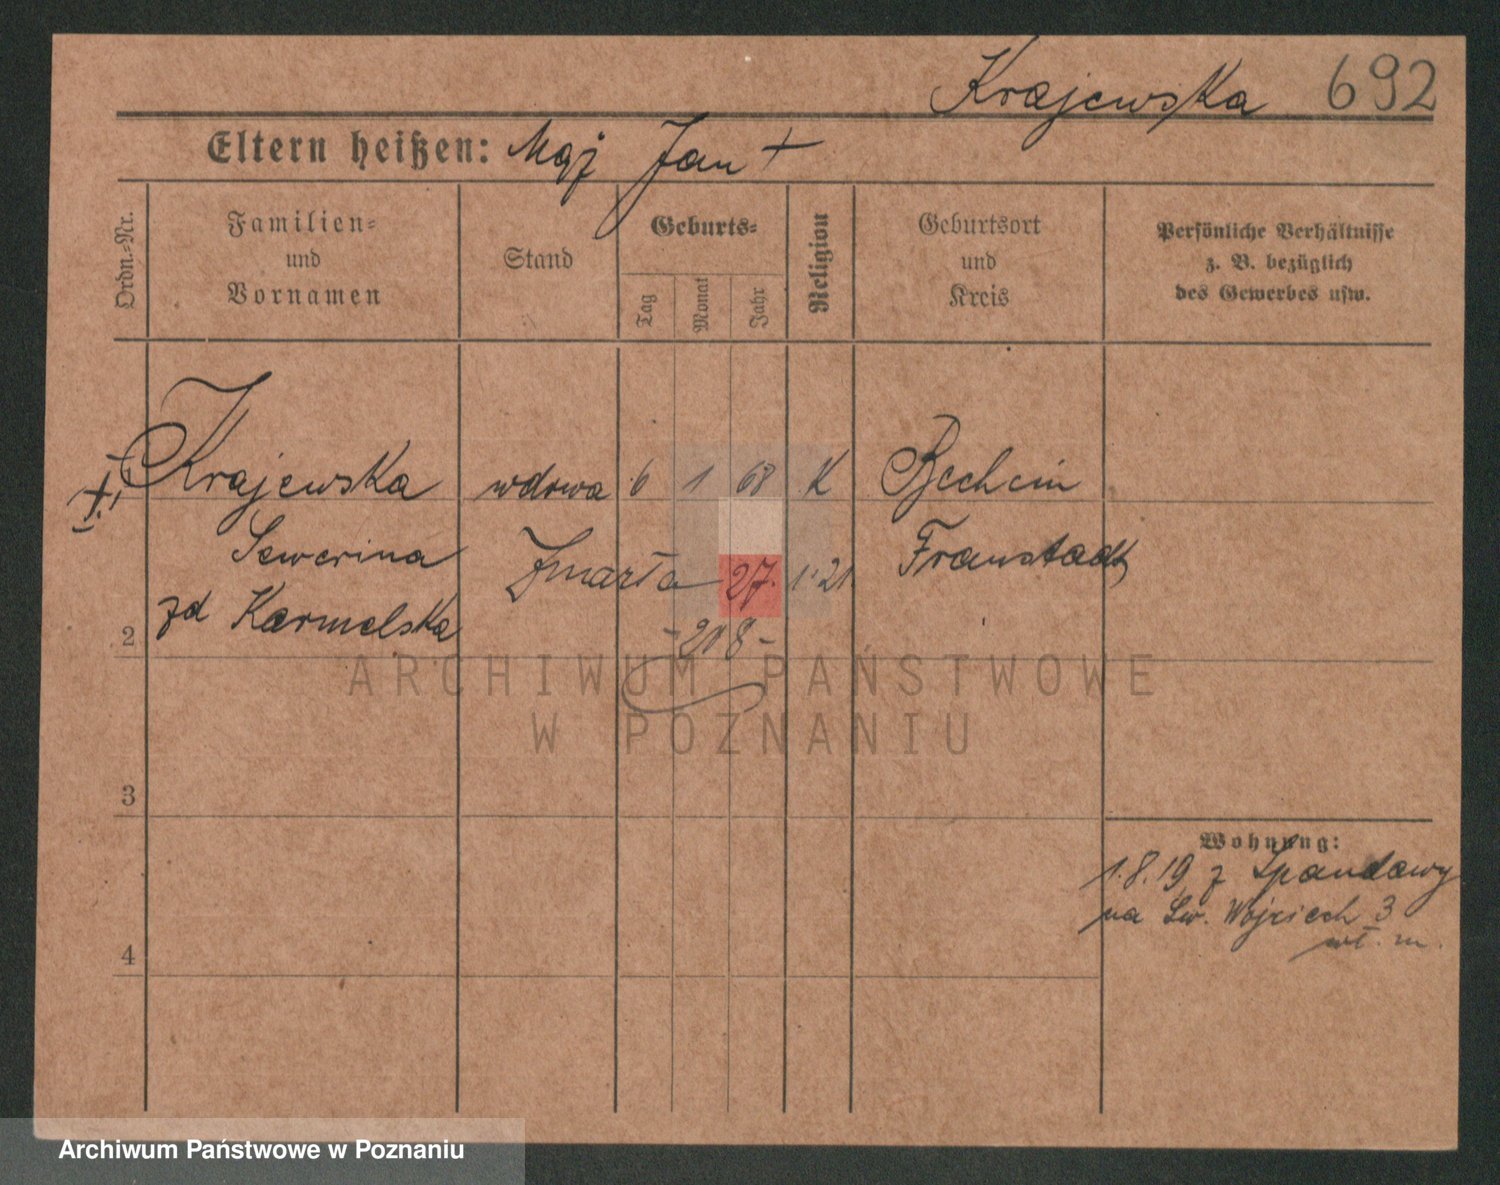 Krajewska 692
Eltern heißen: Mąż Jan +
Ordn.-Nr.
Familien-
und
Vornamen
Stand
Geburts-
Tag
Monat
Jahr
Religion
Geburtsort
und
Kreis
Persönliche Verhältnisse
z. B. bezüglich
des Gewerbes usw.
Krajewska wdowa 6 1 68 K
Sewerina Zmarła 27. 1. 21 Fraustadt
zd Karmelska
2 - 208 -
ARCHIWUM PAŃSTWOWE
W POZNANIU
3
Wohnung:
1.8.19 z Spandawy
na Św. Wojciech 3
4 wł. m.
Archiwum Państwowe w Poznaniu